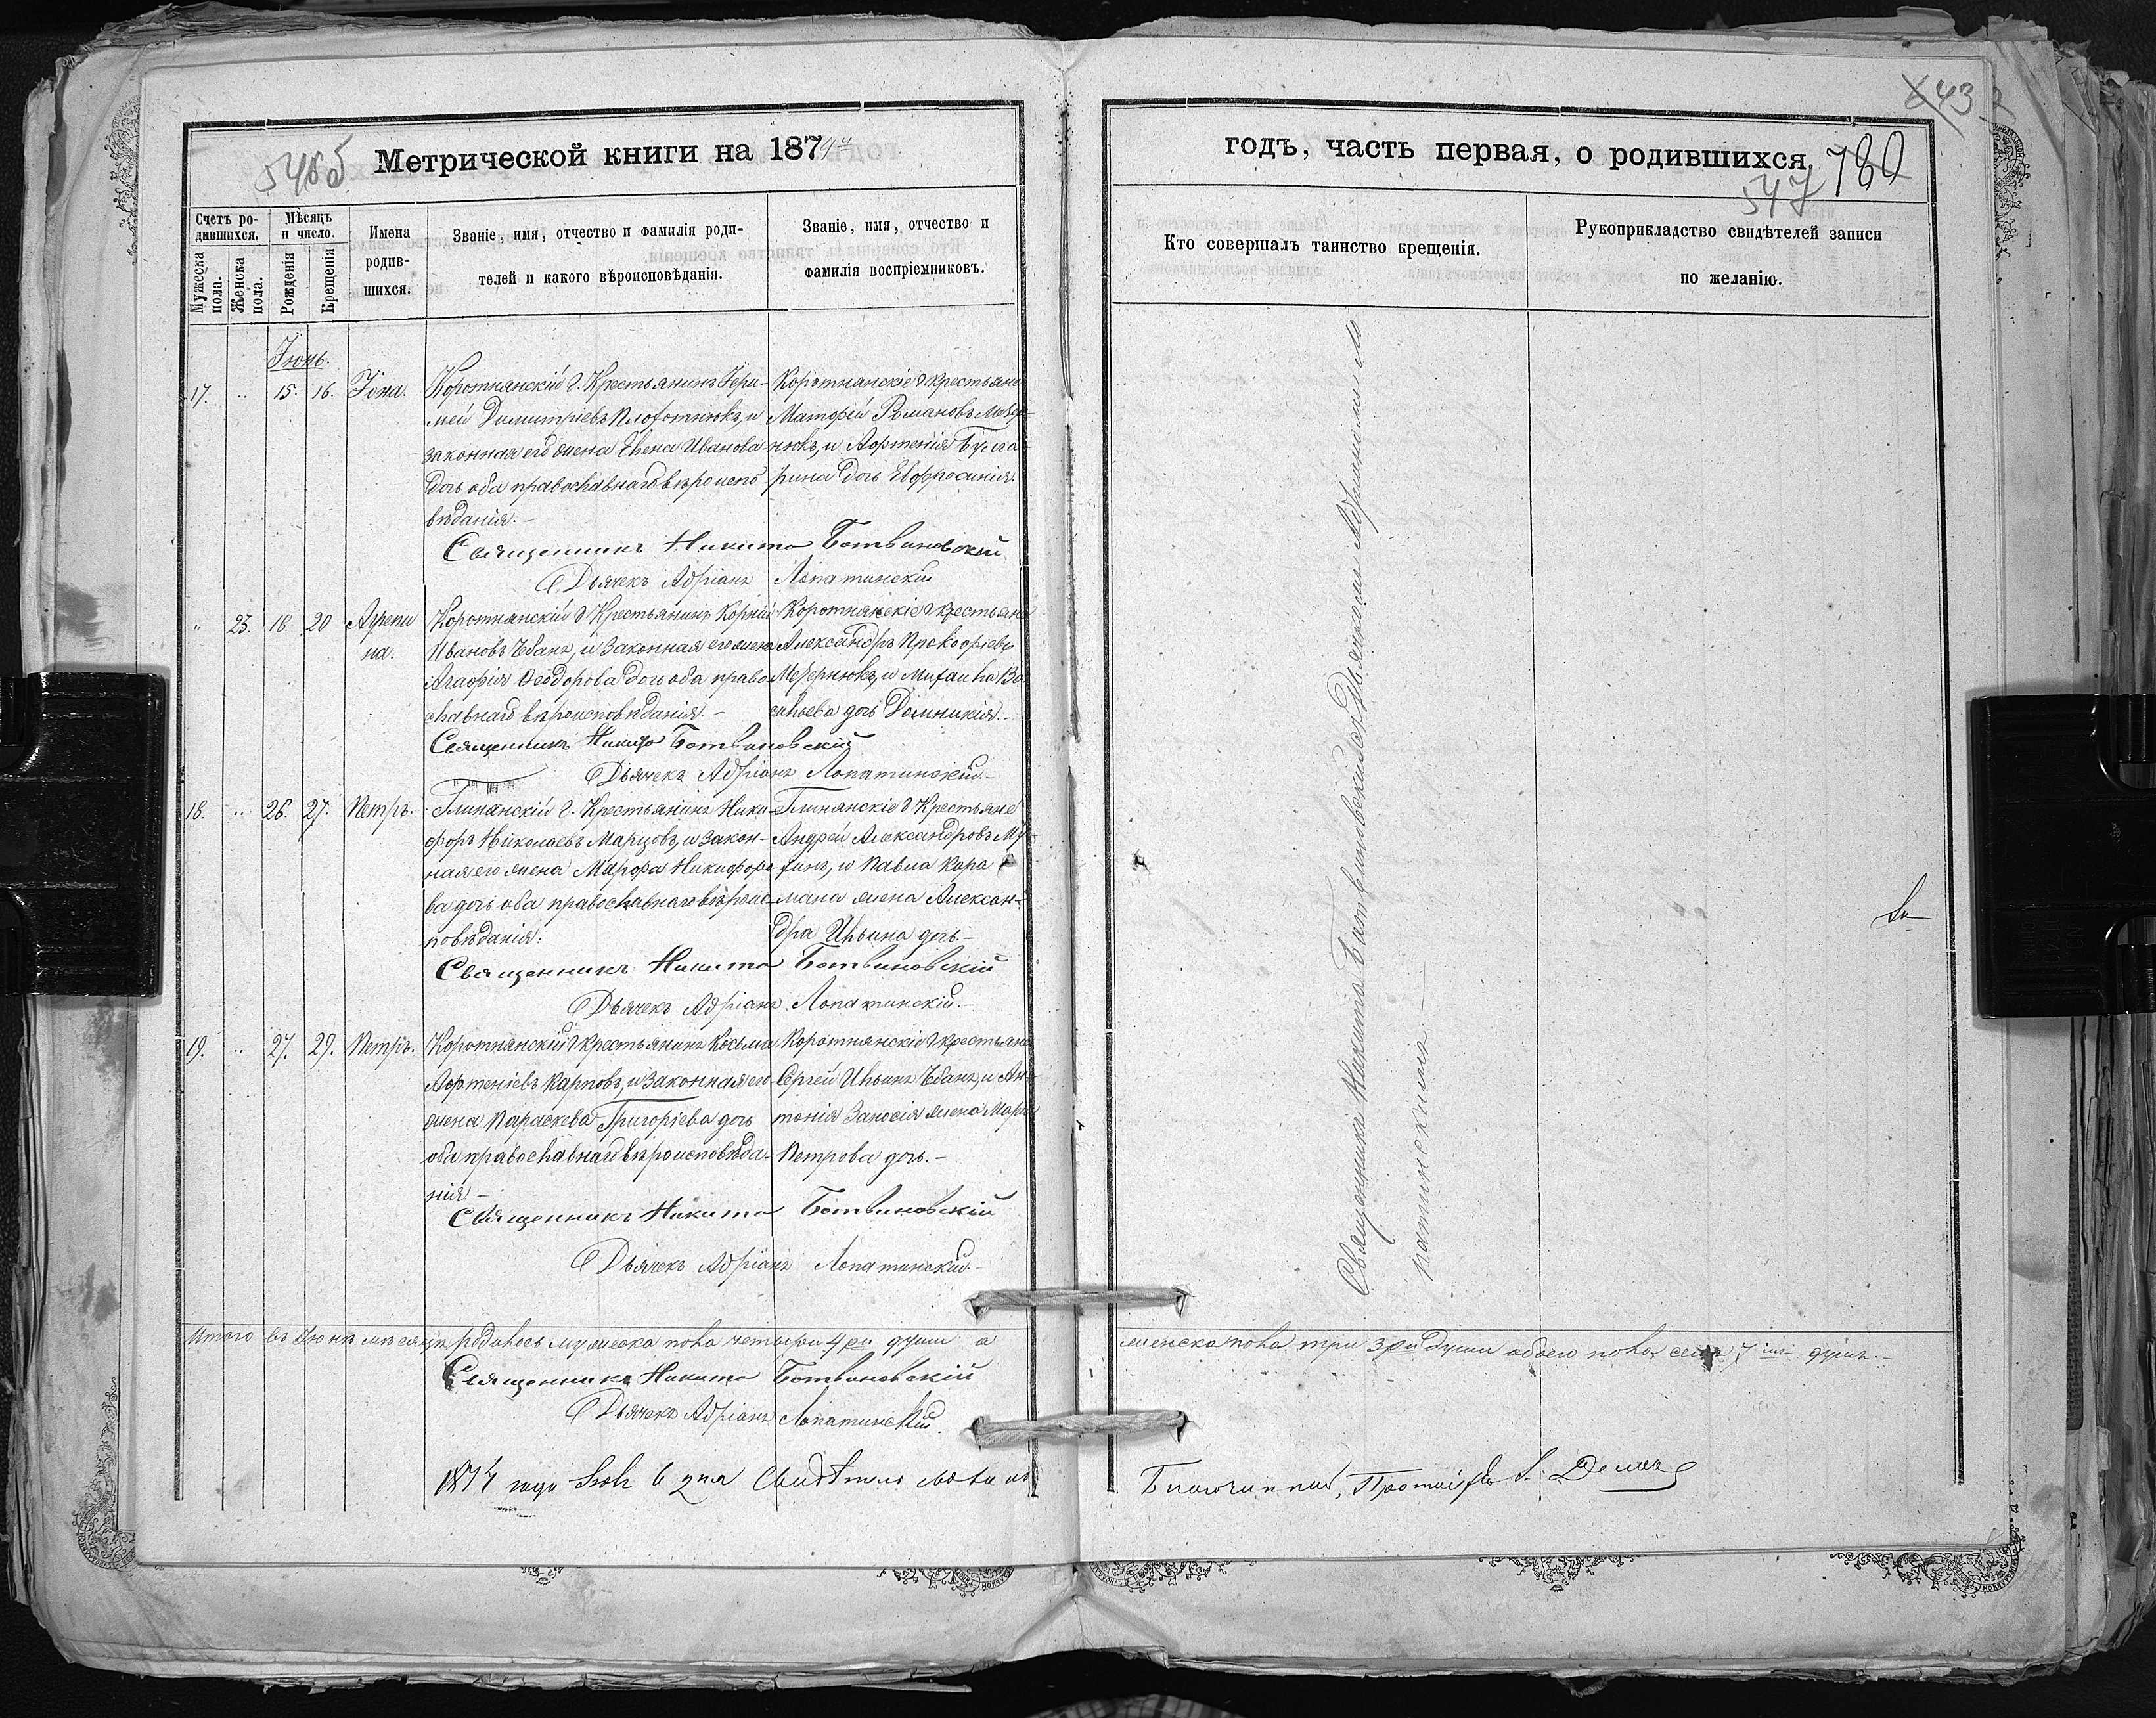 5465
Метрической книги на 1874й
Счетъ ро-
дившихся.
Мужеска пола.
Женска пола.
Мѣсяцъ
и число.
Рожденія
Крещенія
Имена
родив-
шихся.
Званіе, имя, отчество и фамилія роди-
телей и какого вѣроисповѣданія.
Званіе, имя, отчество и
фамилія воспріемниковъ.
Іюнь.
17. „ 15. 16. Іона.
Коротнянскій д. Крестьянинъ Іери-
мей Димитріевъ и
законная его жена Елена Иванова
дочь оба православнаго вѣроиспо
вѣданія.-
Коротнянскіе д крестьяне
Матфей Романовъ
нюкъ, и Афтенія Булга
рина дочь Евфросинія.
Священникъ Никита Ботвиновскій
Дьячекъ Адріанъ Лопатинскій
„ 23. 18. 20 Агрепи
на.
Коротнянскій д Крестьянинъ Корній
Ивановъ Чбанъ, и законная его жена
Агафія Феодорова дочь оба право-
славнаго вѣроисповѣданія.-
Коротнянскіе д крестьяне
Александръ Прокофіевъ
Мезернюкъ, и Михаила Ва
сильева дочь Домникія.-
Священникъ Никита Ботвиновскій
Дьячекъ Адріанъ Лопатинскій.-
18. „ 26. 27. Петръ.
Глинянскій д. Крестьянинъ Ники-
форъ Николаевъ Марцовъ, и закон-
ная его жена Марфа Никифоро
ва дочь оба православнаго вѣроис-
повѣданія.
Глинянскіе д Крестьяне
Андрей Александровъ
и Павла Кара
мана жена Алексан-
дра Ильина дочь.-
Священникъ Никита Ботвиновскій
Дьячекъ Адріанъ Лопатинскій.-
19. „ 27. 29. Петръ.
Коротнянскій д крестьянинъ Косьма
Афтеніевъ Карповъ, и законная его
жена Параскева Григоріева дочь
оба православнаго вѣроисповѣда-
нія-
Коротнянскіе д крестьяне
Сергей Ильинъ Чбанъ, и Ан-
тонія жена Марія
Петрова дочь.-
Священникъ Никита Ботвиновскій
Дьячекъ Адріанъ Лопатинскій.-
Итого въ Іюнѣ мѣсяцѣ родилось мужеска пола четыри 4ри души а
Священникъ Никита Ботвиновскій
Дьячекъ Адріанъ Лопатинскій.
1874 года 6 дня Свидѣтельствовалъ
643
годъ, часть первая, о родившихся.
547
780
Кто совершалъ таинство крещенія.
Рукоприкладство свидѣтелей записи
по желанію.
Священникъ Никита Ботвиновскій съ Дьячкомъ Адріаномъ Ло
патинскимъ.-
женска пола три 3ри души обоего пола семь 7мь душъ.-
Благочинный, Протоіерей